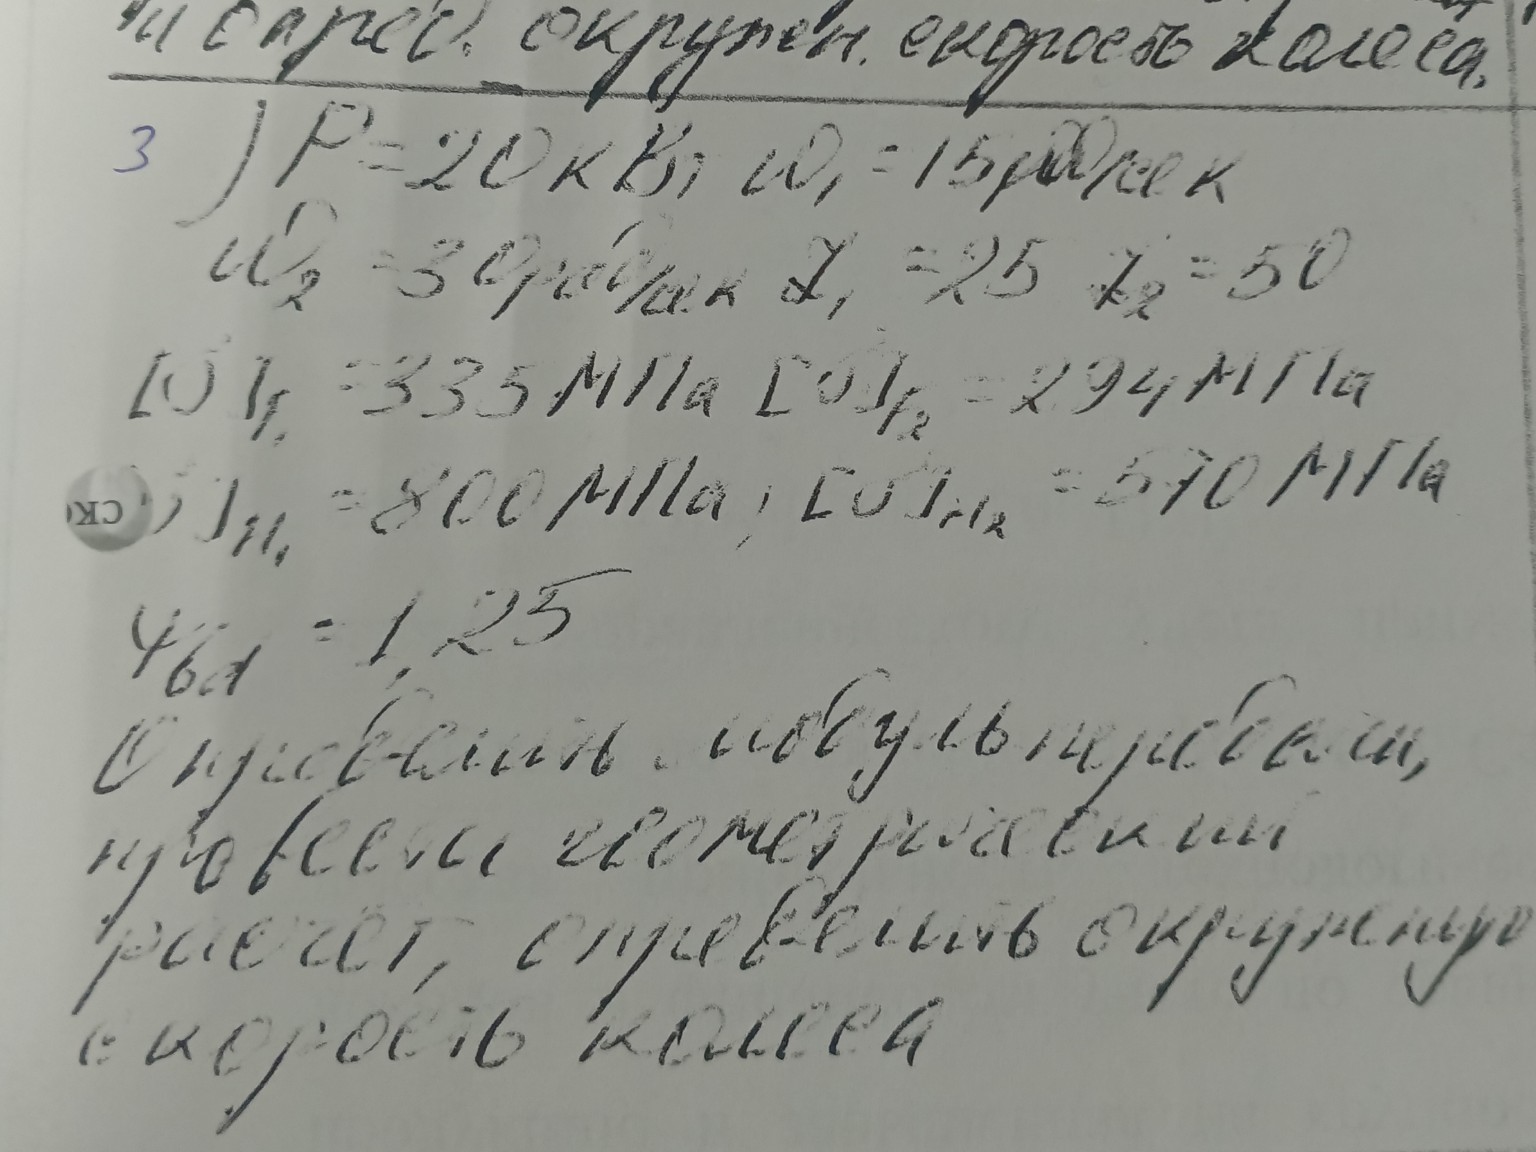 и опред. окружен. скорость колеса.
3) P = 20 кВт ω₁ = 15 рад/сек
ω₂ = 30 рад/сек Z₁ = 25 Z₂ = 50
[σ]F₁ = 335 МПа [σ]F₂ = 294 МПа
СК σ]H₁ = 800 МПа; [σ]H₂ = 570 МПа
ψbd = 1,25
Определить модуль передачи,
провести геометрический
расчёт, определить окружную
скорость колеса